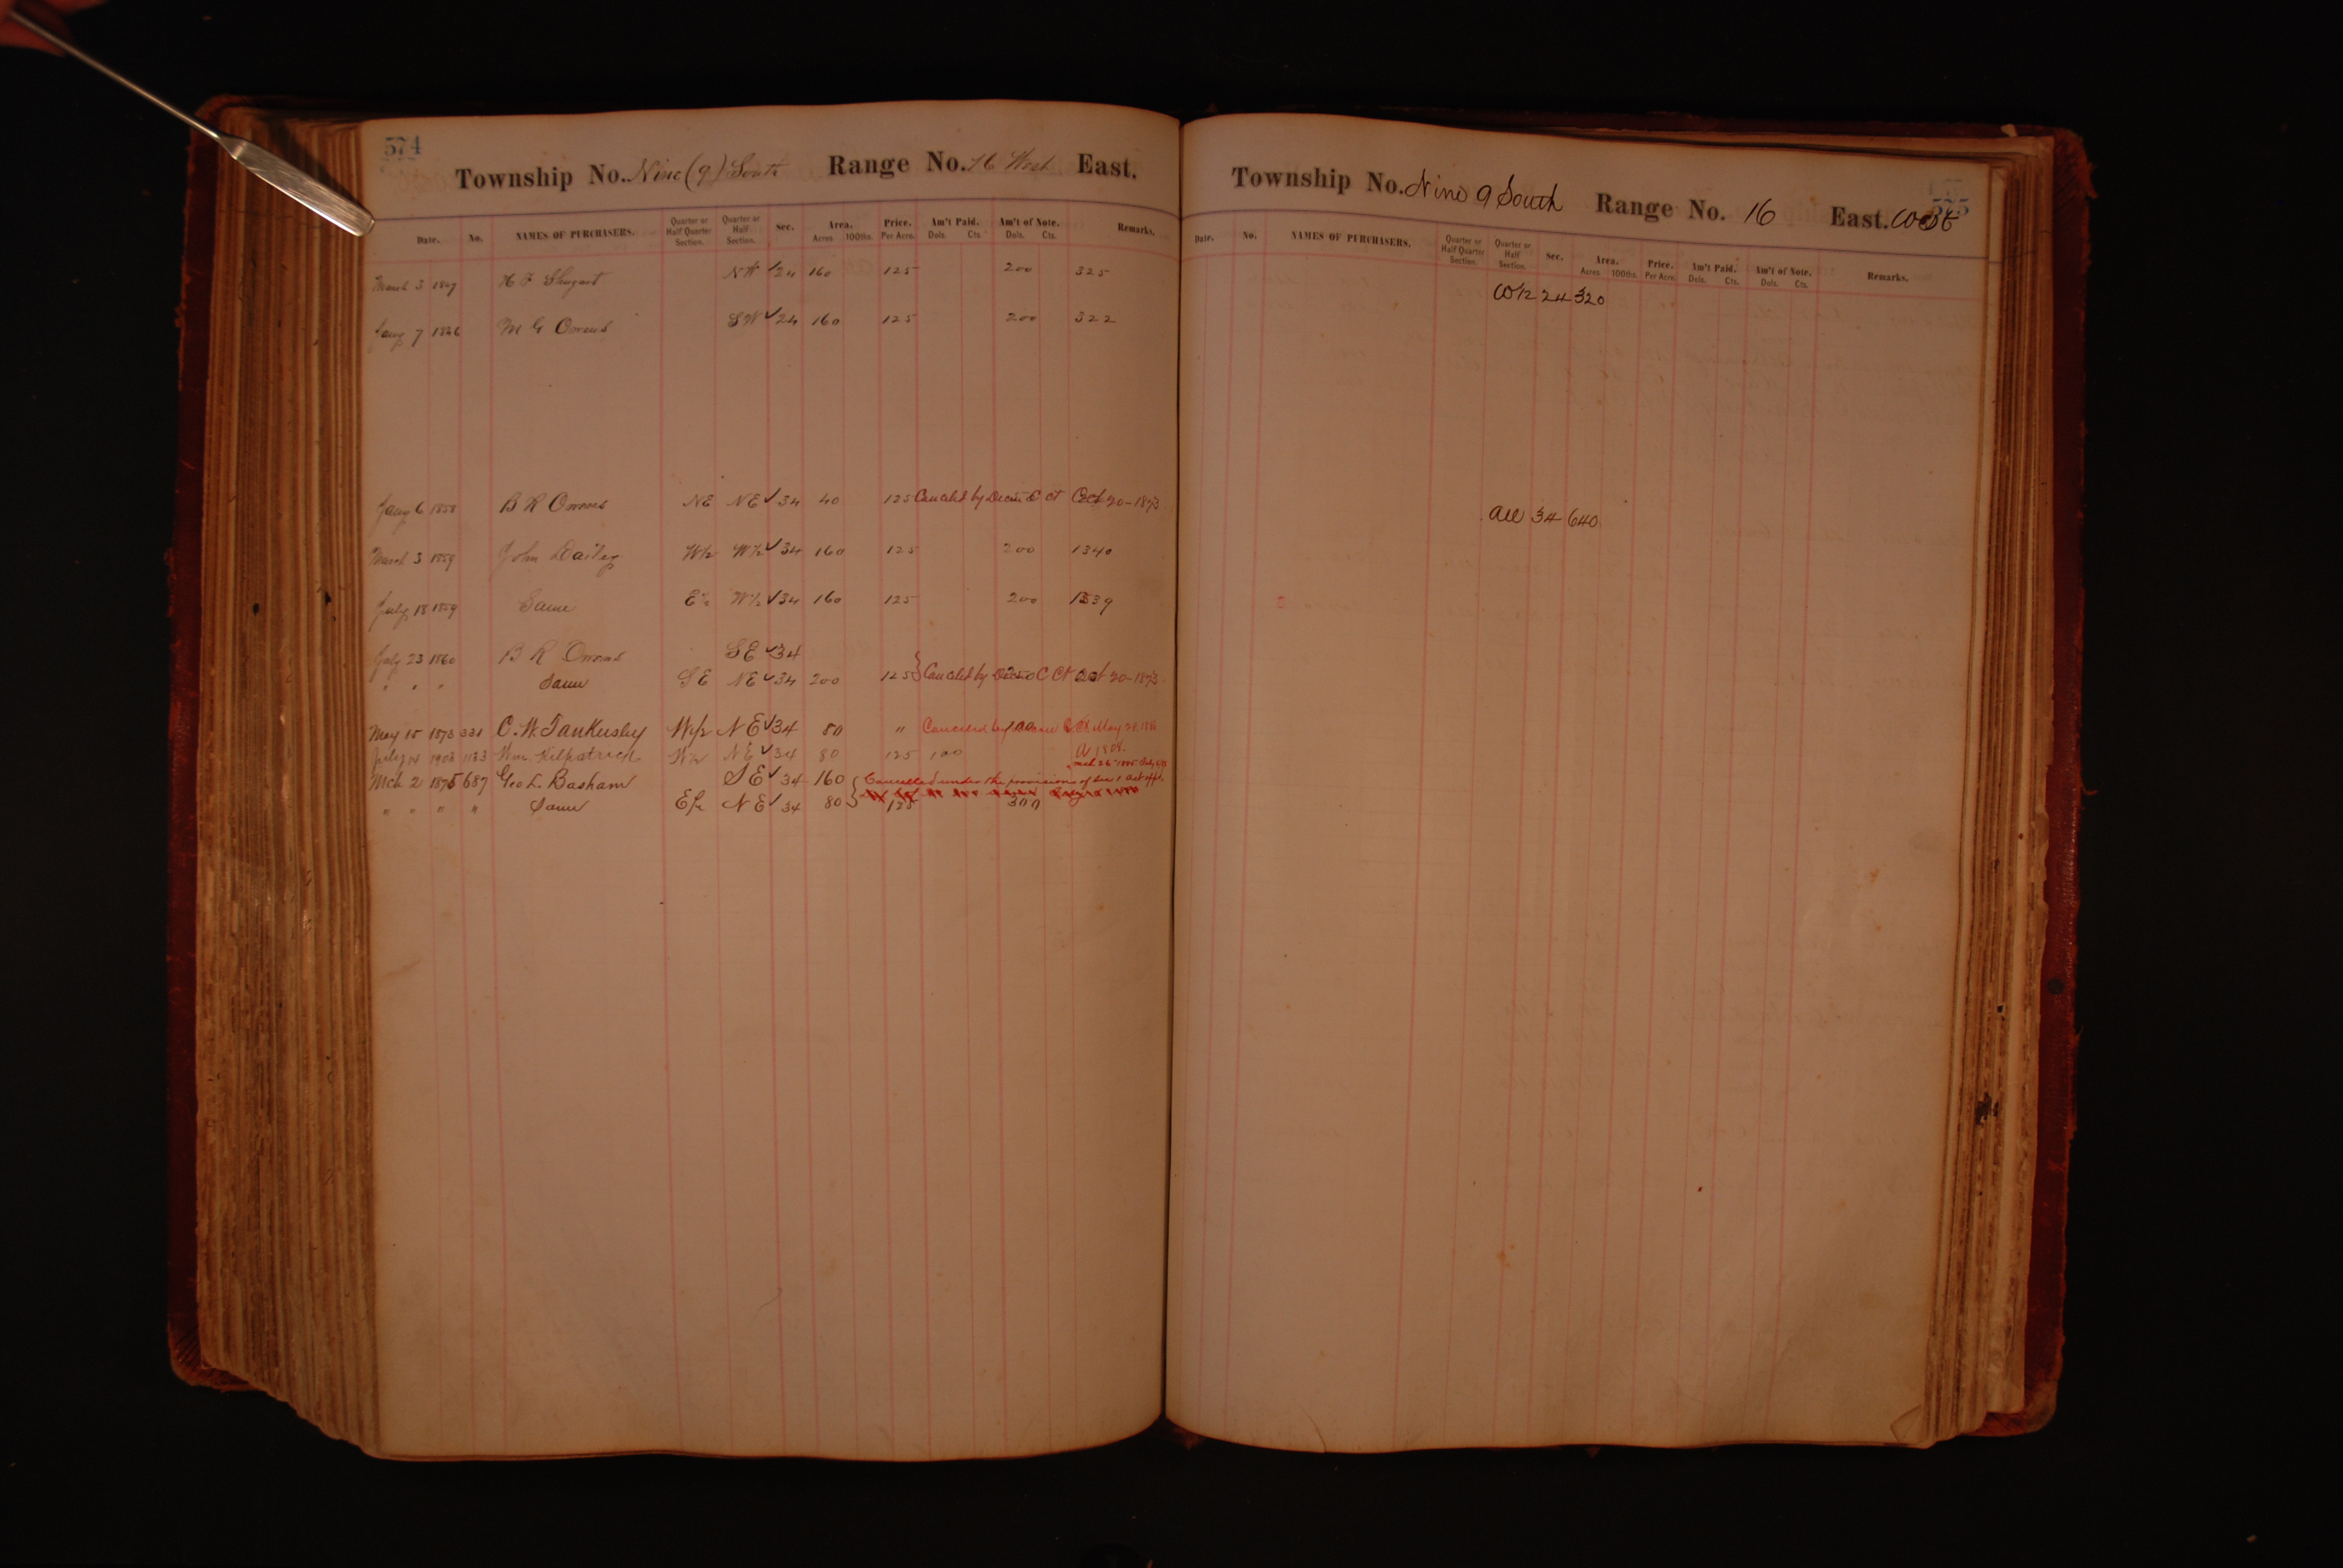 574
Township No. Nine (9) South Range No. 16 West East.
Date. No. NAMES OF PURCHASERS. Quarter or Half Quarter Section. Quarter or Half Section. Sec. Area. Acres 100ths. Price. Per Acre. Am't Paid. Dols. Cts. Am't of Note. Dols. Cts. Remarks.
March 3 1847 NW ✓ 24 160 125 200 325
Jany 7 M G Owens SW ✓ 24 160 125 200 322
Jany 6 1858 B R Owens NE NE ✓ 34 40 125 Canceled by C Ct Oct 20-1873
March 3 1859 John Dailey W½ W½ ✓ 34 160 125 200 1340
July 18 1859 Same E½ W½ ✓ 34 160 125 200 1339
July 23 1860 B R Owens SE ✓ 34
" " " Same SE NE ✓ 34 200 125 } Canceled by C Ct Oct 20-1873
May 15 1873 331 C. W. Tankersley W½ NE ✓ 34 80 " Canceled by
July 14 1903 1133 Wm. Kilpatrick W½ NE ✓ 34 80 125 100
Mch 2 1875 687 Geo L. Basham SE ✓ 34 160 Cancelled under the provisions of Sec 1 Act
" " " " Same E½ NE ✓ 34 80 } 125 300
575
Township No. Nine 9 South Range No. 16 East. West
Date. No. NAMES OF PURCHASERS. Quarter or Half Quarter Section. Quarter or Half Section. Sec. Area. Acres 100ths. Price. Per Acre. Am't Paid. Dols. Cts. Am't of Note. Dols. Cts. Remarks.
W½ 24 320
All 34 640